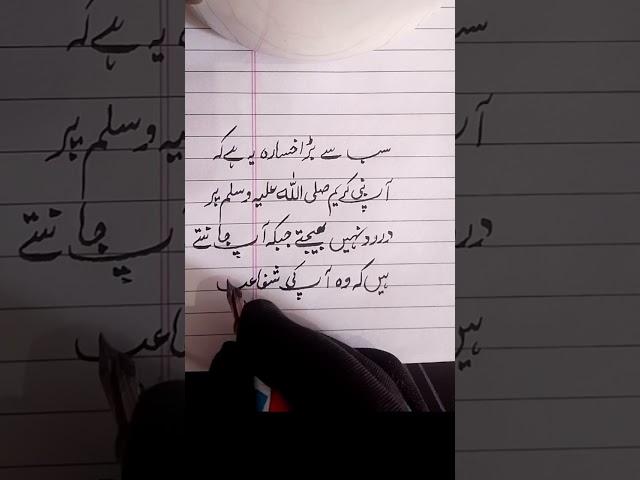 سب سے بڑا خسارہ یہ ہے کہ
آپ نبی کریم صلی اللہ علیہ وسلم پر
درود نہیں بھیجتے جبکہ آپ جانتے
ہیں کہ وہ آپ کی شفاعت